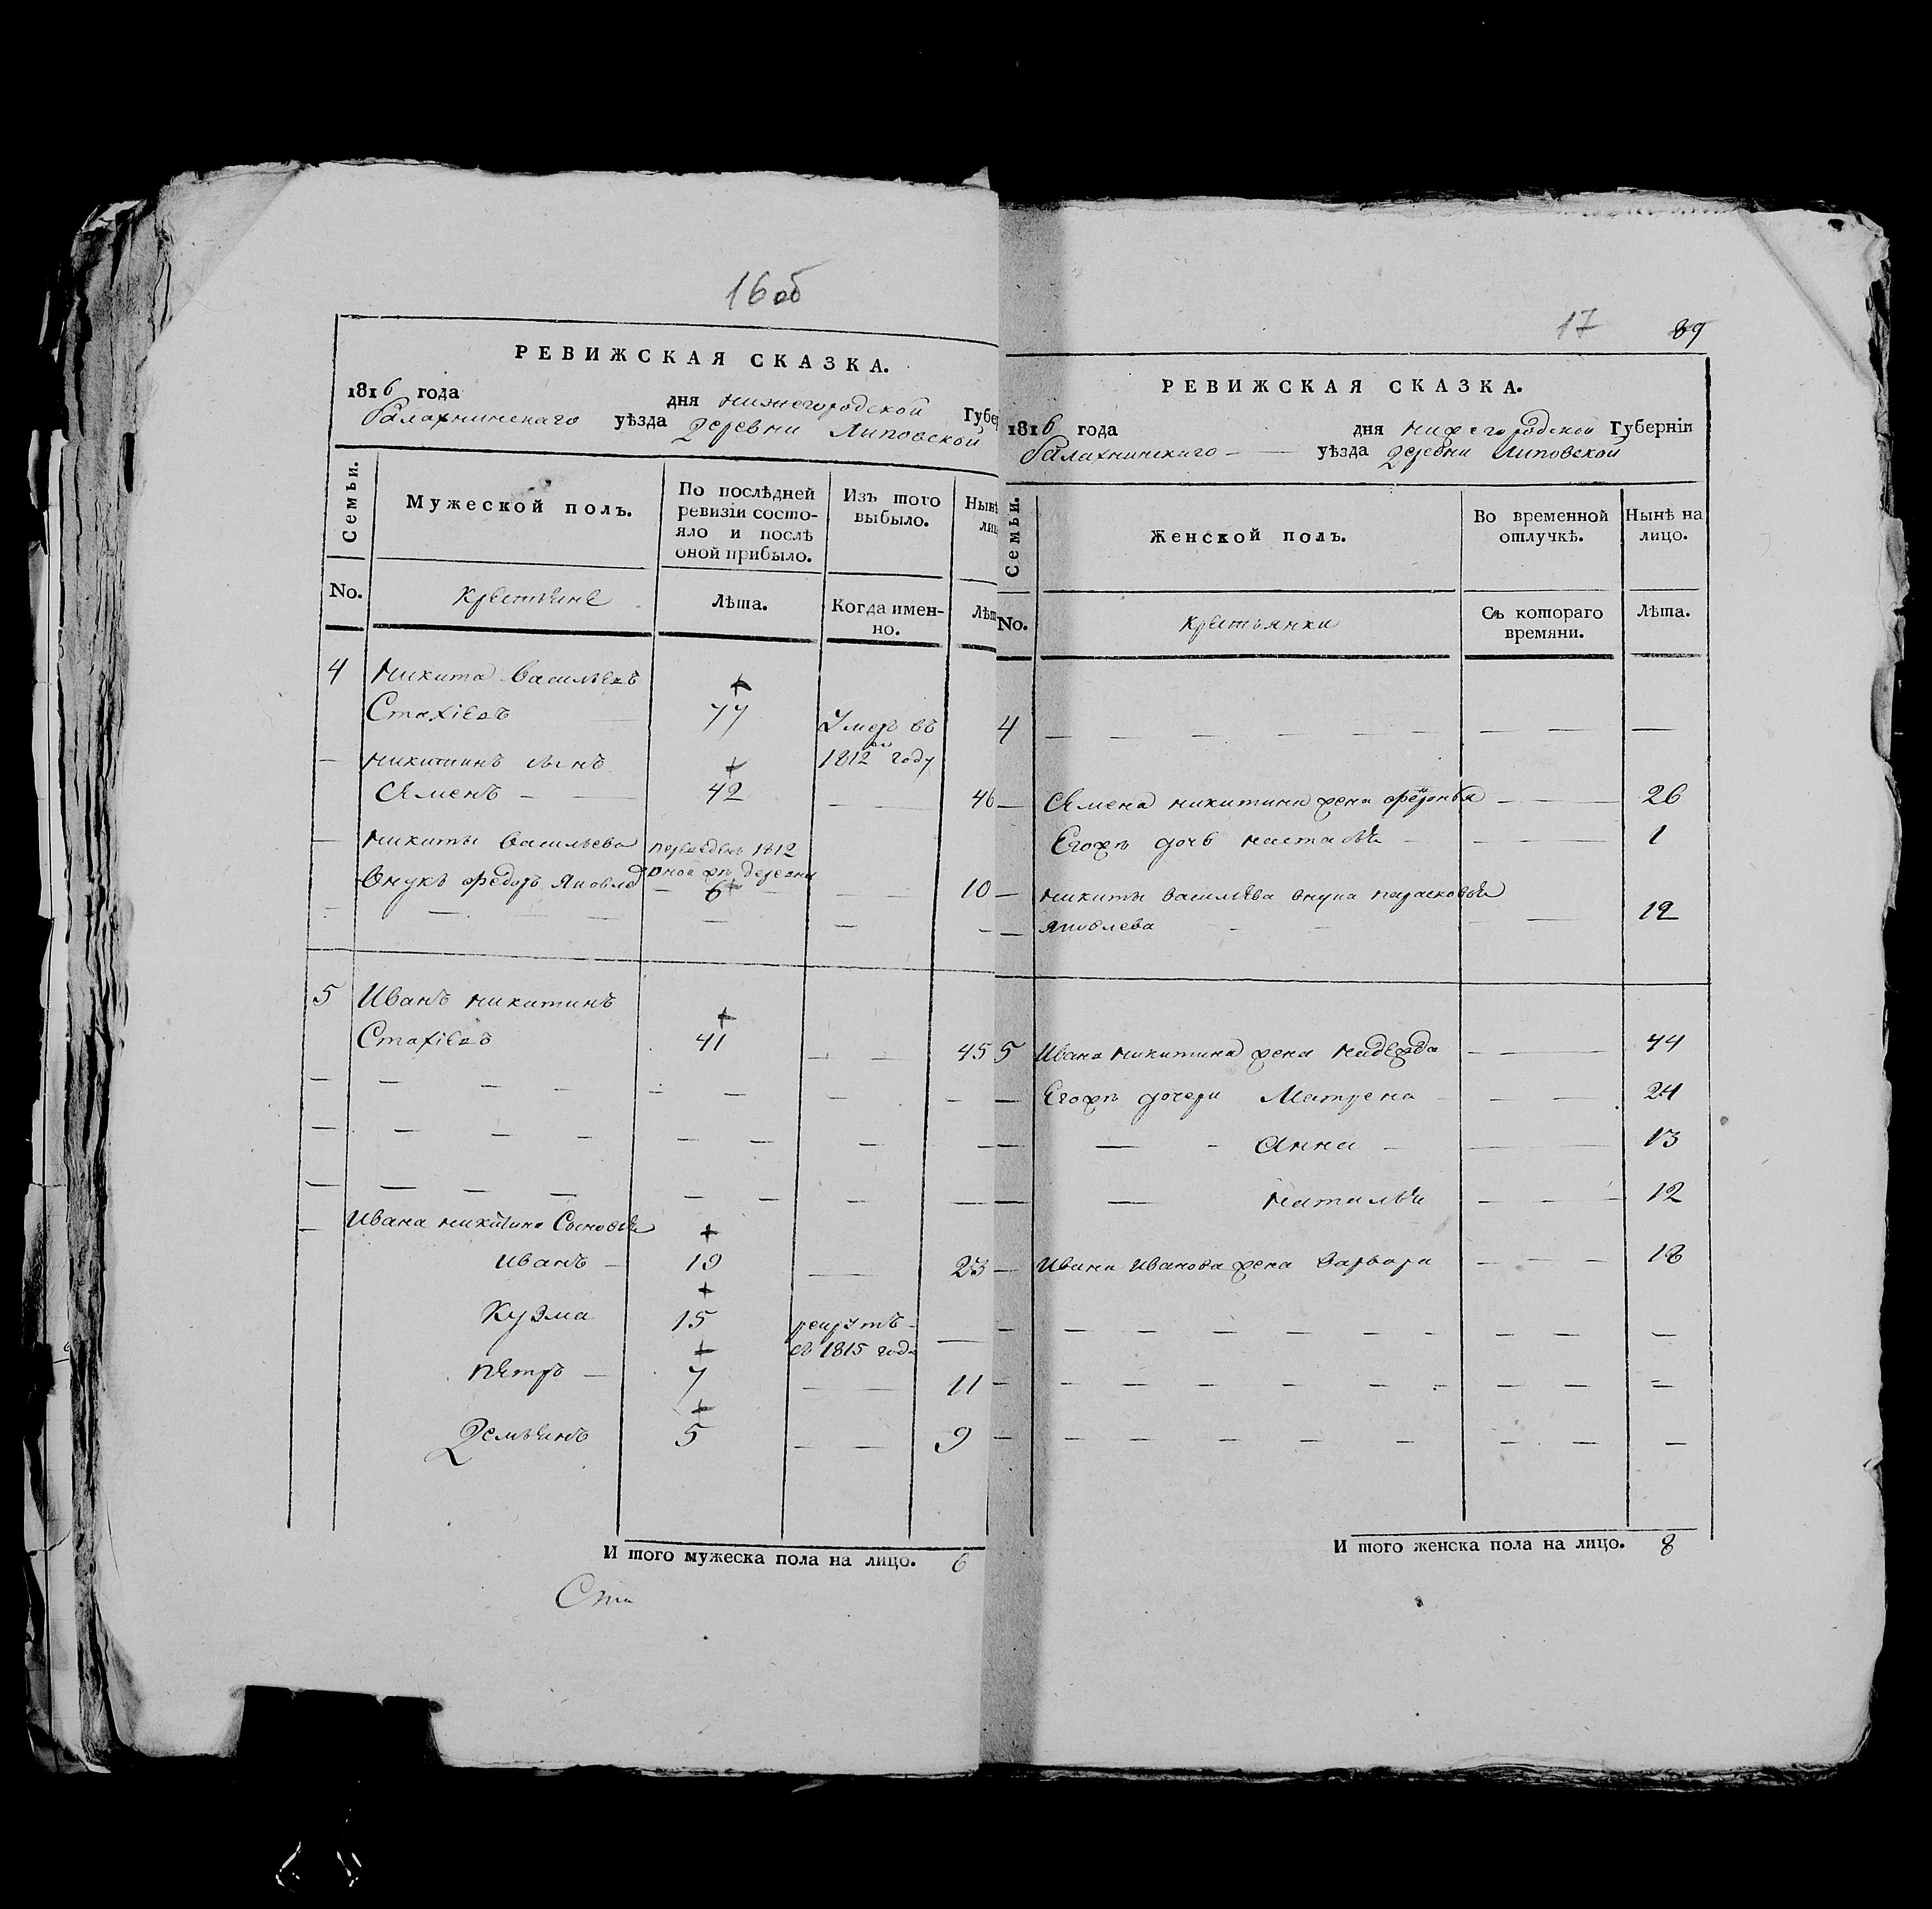 16 об
РЕВИЖСКАЯ СКАЗКА.
1816 года дня Нижегородской Губер
Балахнинскаго уѣзда Деревни Липовской
Семьи.
Мужеской полъ.
По послѣдней ревизіи состо-
яло и послѣ
оной прибыло.
Изъ того
выбыло.
Нынѣ
лиц
No.
Крестьяне
Лѣта.
Когда имен-
но.
Лѣт
4 Никита Васильевъ
Стахіевъ 77 Умеръ въ
1812 году
Никитинъ сынъ
Семенъ 42 46
Никиты Васильева переведенъ 1812
Внукъ Федоръ Яковлев 6 10
5 Иванъ Никитинъ
Стахіевъ 41 45
Ивана Никитина Сыновья
Иванъ 19 23
Кузма 15 рекрутъ
въ 1815 году
Петръ 7 11
Демьянъ 5 9
И того мужеска пола на лицо. 6
17 89
РЕВИЖСКАЯ СКАЗКА.
1816 года дня Нижегородской Губерніи
Балахнинскаго уѣзда Деревни Липовской
Семьи.
Женской полъ.
Во временной
отлучкѣ.
Нынѣ на
лицо.
No.
Крестьянки
Съ котораго
времяни.
Лѣта.
4
Семена Никитина жена 26
Егожъ дочь Настасья 1
Никиты Васильева внука Парасковья
Яковлева 12
5 Ивана Никитина жена Надежда 44
Егожъ дочери Матрена 24
Анна 13
Наталья 12
Ивана Иванова жена Варвара 18
И того женска пола на лицо. 8